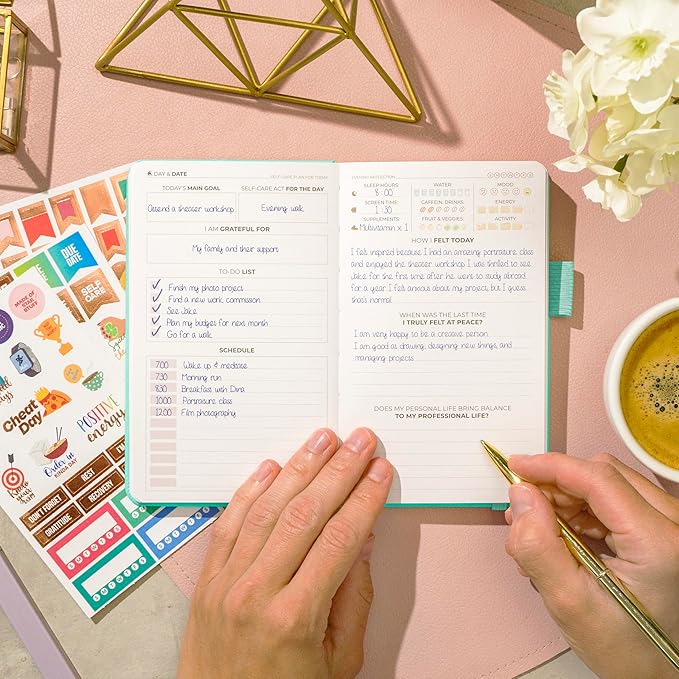 DAY & DATE
SELF-CARE PLAN FOR TODAY
TODAY'S MAIN GOAL
SELF-CARE ACT FOR THE DAY
Attend a theater workshop
Evening walk
I AM GRATEFUL FOR
My family and their support
TO-DO LIST
Finish my photo project
Find a new work commission
See Jake
Plan my budges for next month
Go for a walk
SCHEDULE
7:00 Wake up & medicate
7:30 Morning run
8:30 Breakfast with Dina
10:00 Pornsature class
12:00 Film photography
EVENING REFLECTION
SLEEP HOURS
8 : 00
SCREEN TIME
1 : 30
SUPPLEMENTS
Multivitamin x 1
WATER
CAFFEIN. DRINKS
FRUIT & VEGGIES
MOOD
ENERGY
ACTIVITY
HOW I FELT TODAY
I felt inspired because I had an amazing pornsature class
and enjoyed the theater workshop. I was thrilled to see
Jake for the first time after he went to study abroad
for a year. I felt anxious about my project, but I guess
that's normal.
WHEN WAS THE LAST TIME
I TRULY FELT AT PEACE?
I am very happy to be a creative person.
I am good at drawing, designing new things, and
managing projects
DOES MY PERSONAL LIFE BRING BALANCE
TO MY PROFESSIONAL LIFE?
DUE
DATE
SELF
CARE
MADE OF
STAR STUFF
Cheat
Day
POSITIVE
energy
Order in
KINDA DAY
DON'T FORGET
REST
RECOVERY
GRATITUDE
S M T W T F S
S M T W T F S